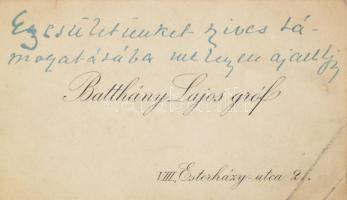 Egyesületünket szives tá-
mogatásába melegen ajánlja
Batthány Lajos gróf
VIII, Esterházy-utca